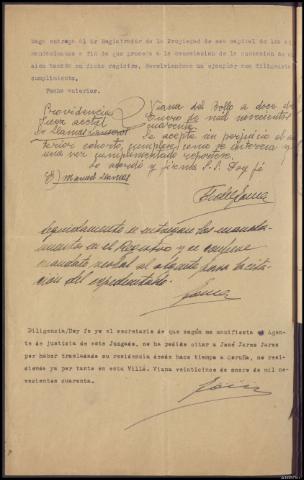 Hago entrega al Sr Registrador de la Propiedad de esa capital de los
mandamientos a fin de que proceda a la cancelación de la
en dicho registro, devolviendose un ejemplar con diligencia
cumplimiento.
Fecha anterior.
Providencia
Juez acctal
Sr Llamas
Viana del Bollo a doce de
Enero de mil novecientos
cuarenta.
Se acepta sin perjuicio el an-
terior exhorto, cumplase como se interesa y
una vez cumplimentado repórtese.
Lo acordó y firma S.S. Doy fé
Manuel Llamas
Seguidamente se entregan los manda-
mientos en el Registro y se confiere
mandato verbal al Agente para la cita-
cion del expedientado.
Diligencia/Doy fe yo el secretario de que según me manifiesta el Agen-
te de justicia de este Juzgado, no ha podido citar a José Jares Jares
por haber trasladado su residencia desde hace tiempo a Coruña, no re-
sidiendo ya por tanto en esta Villa. Viana veintinueve de enero de mil no-
vecientos cuarenta.